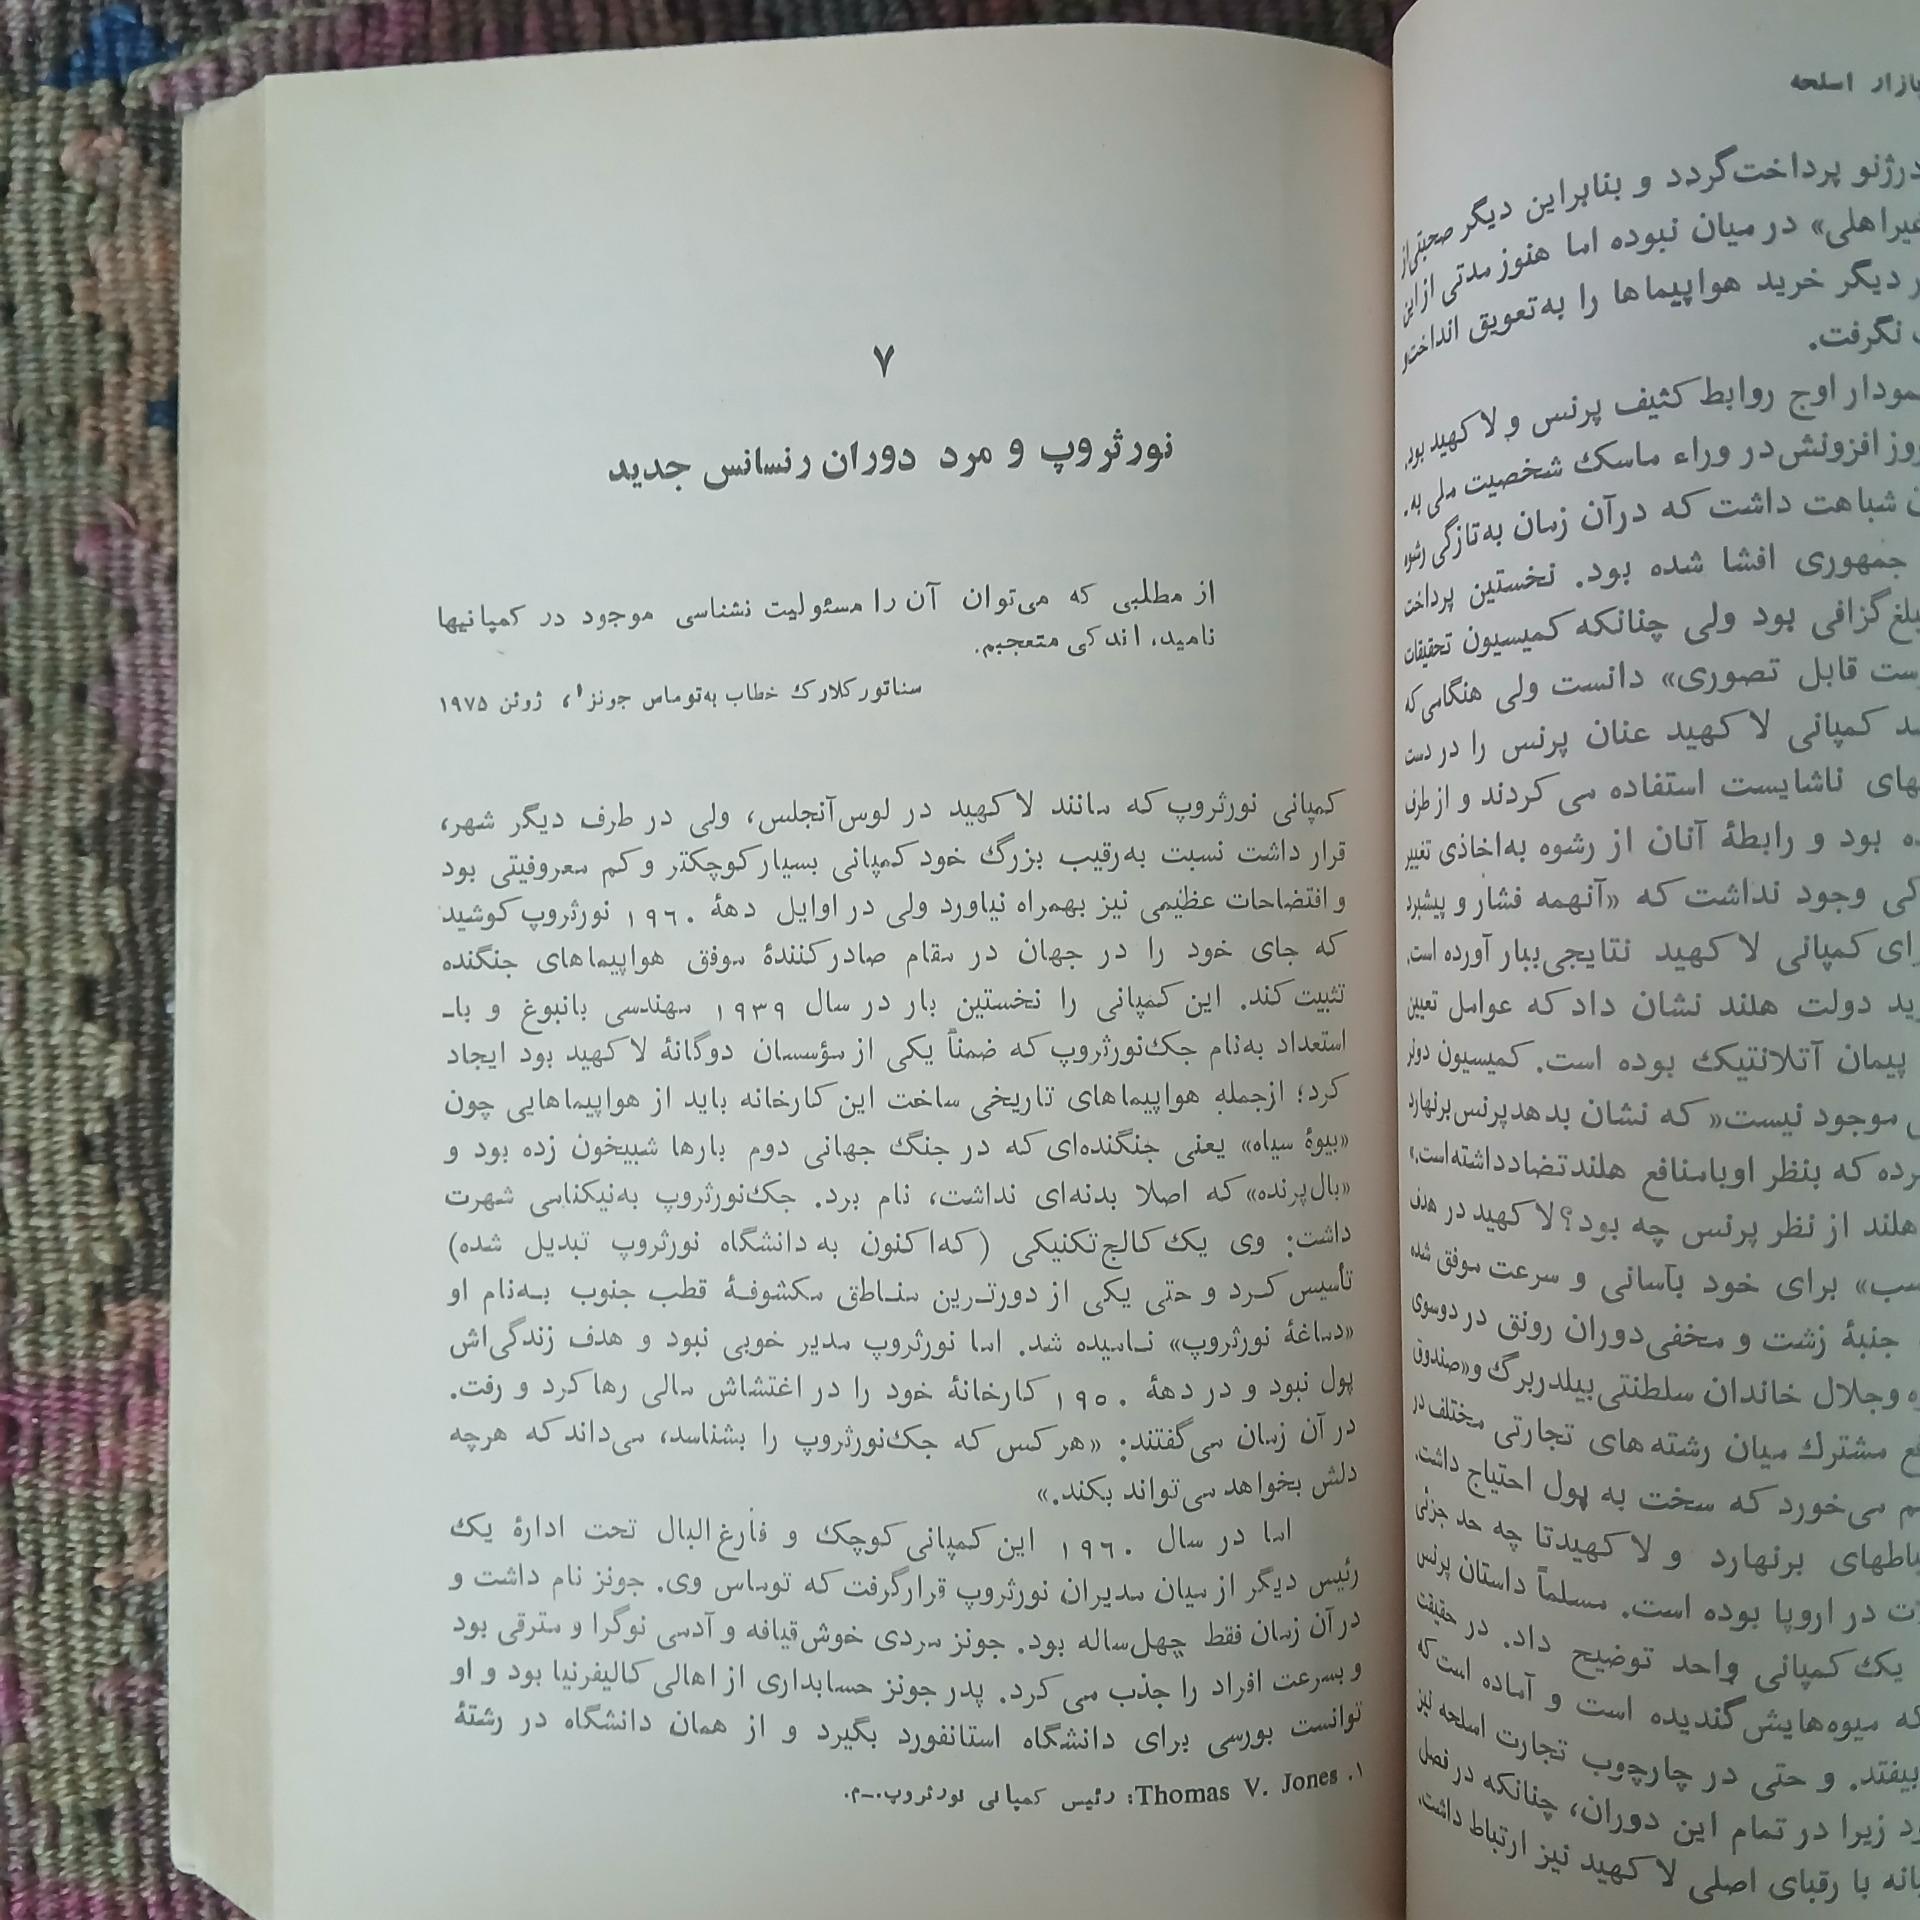 بازار اسلحه
درژنو پرداخت گردد و بنابراین دیگر صحبتی از
غیراهلی» در میان نبوده اما هنوز مدتی از این
دیگر خرید هواپیماها را به تعویق انداخت و
نگرفت.
نمودار اوج روابط کثیف پرنس و لاکهید بود.
روز افزونش در وراء ماسک شخصیت ملی به.
شباهت داشت که درآن زمان به تازگی رشوه
جمهوری افشا شده بود. نخستین پرداخت
مبلغ گزافی بود ولی چنانکه کمیسیون تحقیقات
قابل تصوری» دانست ولی هنگامی که
کمپانی لاکهید عنان پرنس را در دست
ناشایست استفاده می کردند و از طرف
بود و رابطهٔ آنان از رشوه به اخاذی تغییر
وجود نداشت که «آنهمه فشار و پیشبرد
کمپانی لاکهید نتایجی ببار آورده است.
دولت هلند نشان داد که عوامل تعیین
پیمان آتلانتیک بوده است. کمیسیون دونر
موجود نیست« که نشان بدهد پرنس برنهارد
که بنظر او با منافع هلند تضاد داشته است.»
هلند از نظر پرنس چه بود؟ لاکهید در هدف
برای خود بآسانی و سرعت موفق شده
جنبهٔ زشت و مخفی دوران رونق در دوسوی
وجلال خاندان سلطنتی بیلدربرگ و «صندوق
مشترک میان رشته های تجارتی مختلف در
می خورد که سخت به پول احتیاج داشت.
برنهارد و لاکهید تا چه حد جزئی
در اروپا بوده است. مسلماً داستان پرنس
یک کمپانی واحد توضیح داد. در حقیقت
که میوه هایش گندیده است و آماده است که
بیفتد. و حتی در چارچوب تجارت اسلحه نیز
زیرا در تمام این دوران، چنانکه در فصل
با رقبای اصلی لاکهید نیز ارتباط داشت.
۷
نورثروپ و مرد دوران رنسانس جدید
از مطلبی که می توان آن را مسئولیت نشناسی موجود در کمپانیها
نامید، اندکی متعجبم.
سناتور کلارک خطاب به توماس جونز۱، ژوئن ۱۹۷۵
کمپانی نورثروپ که مانند لاکهید در لوس آنجلس، ولی در طرف دیگر شهر،
قرار داشت نسبت به رقیب بزرگ خود کمپانی بسیار کوچکتر و کم معروفیتی بود
و افتضاحات عظیمی نیز بهمراه نیاورد ولی در اوایل دههٔ ۱۹۶۰ نورثروپ کوشید
که جای خود را در جهان در مقام صادر کنندهٔ موفق هواپیماهای جنگنده
تثبیت کند. این کمپانی را نخستین بار در سال ۱۹۳۹ مهندسی بانبوغ و با-
استعداد به نام جک نورثروپ که ضمناً یکی از مؤسسان دوگانهٔ لاکهید بود ایجاد
کرد؛ ازجمله هواپیماهای تاریخی ساخت این کارخانه باید از هواپیماهایی چون
«بیوهٔ سیاه» یعنی جنگنده ای که در جنگ جهانی دوم بارها شبیخون زده بود و
«بال پرنده» که اصلا بدنه ای نداشت، نام برد. جک نورثروپ به نیکنامی شهرت
داشت: وی یک کالج تکنیکی (که اکنون به دانشگاه نورثروپ تبدیل شده)
تأسیس کرد و حتی یکی از دورترین مناطق مکشوفهٔ قطب جنوب به نام او
«دماغهٔ نورثروپ» نامیده شد. اما نورثروپ مدیر خوبی نبود و هدف زندگی اش
پول نبود و در دههٔ ۱۹۵۰ کارخانهٔ خود را در اغتشاش مالی رها کرد و رفت.
در آن زمان می گفتند: «هر کس که جک نورثروپ را بشناسد، می داند که هرچه
دلش بخواهد می تواند بکند.»
اما در سال ۱۹۶۰ این کمپانی کوچک و فارغ البال تحت ادارهٔ یک
رئیس دیگر از میان مدیران نورثروپ قرار گرفت که توماس وی. جونز نام داشت و
در آن زمان فقط چهل ساله بود. جونز مردی خوش قیافه و آدمی نوگرا و مترقی بود
و بسرعت افراد را جذب می کرد. پدر جونز حسابداری از اهالی کالیفرنیا بود و او
توانست بورسی برای دانشگاه استانفورد بگیرد و از همان دانشگاه در رشتهٔ
۱. Thomas V. Jones: رئیس کمپانی نورثروپ.ـ م.